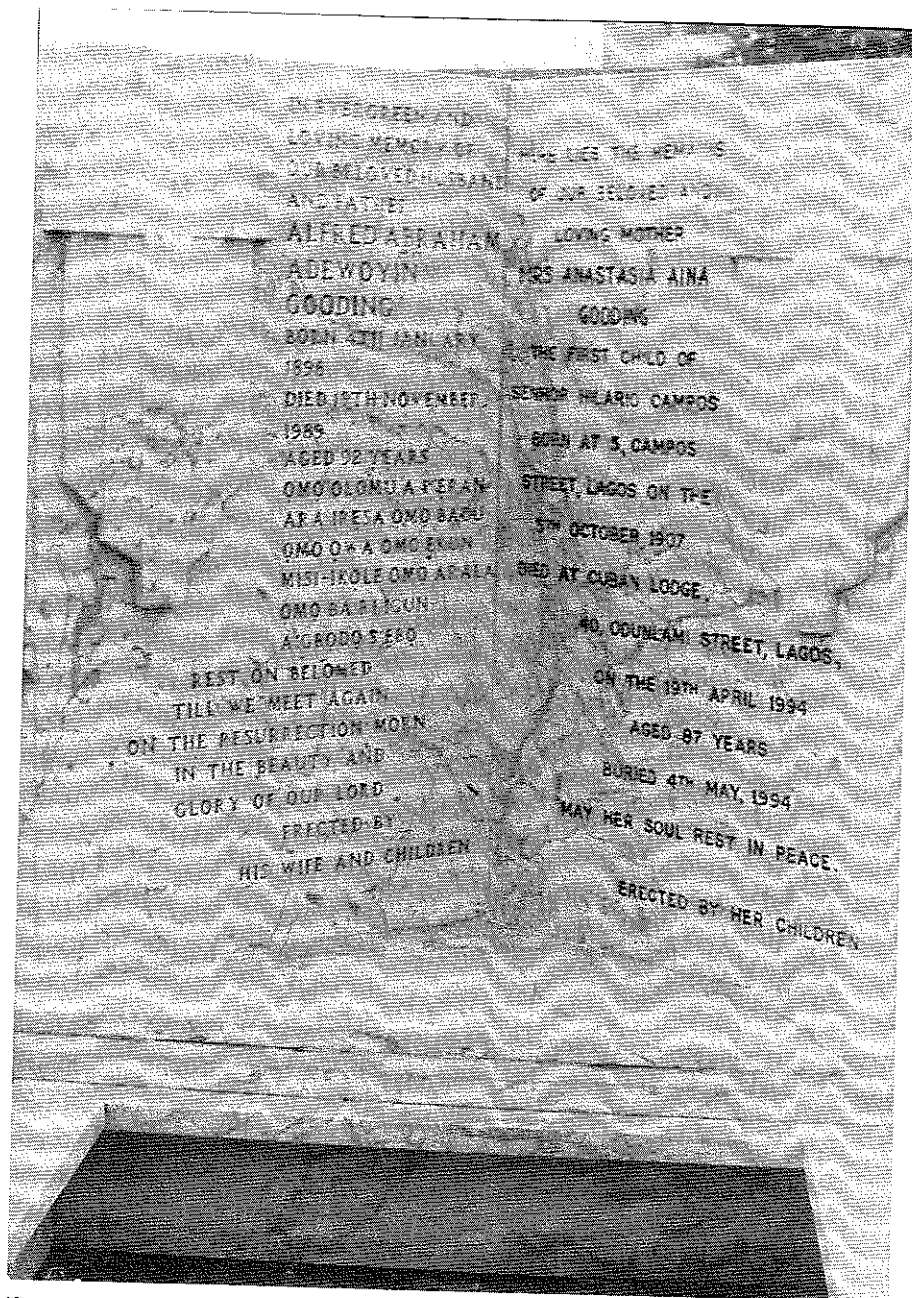 IN EVERGREEN AND
LOVING MEMORY OF
OUR BELOVED HUSBAND
AND FATHER
ALFRED ABRAHAM
ADEWOYIN
GOODING
BORN 4TH JANUARY
1896
DIED 19TH NOVEMBER,
1989
AGED 92 YEARS
OMO OLOMU A
ARA IRESA OMO
OMO OMO EKUN
MISI-IKOLE OMO
OMO
REST ON BELOVED
TILL WE MEET AGAIN
ON THE RESURRECTION MORN
IN THE BEAUTY AND
GLORY OF OUR LORD
ERECTED BY
HIS WIFE AND CHILDREN
HERE LIES THE REMAINS
OF OUR BELOVED AND
LOVING MOTHER
MRS ANASTASIA AINA
GOODING
THE FIRST CHILD OF
SENHOR HILARIO CAMPOS
BORN AT 5, CAMPOS
STREET, LAGOS ON THE
5TH OCTOBER 1907
DIED AT CUBAN LODGE,
40, ODUNLAMI STREET, LAGOS,
ON THE 19TH APRIL 1994
AGED 87 YEARS
BURIED 4TH MAY, 1994
MAY HER SOUL REST IN PEACE.
ERECTED BY HER CHILDREN